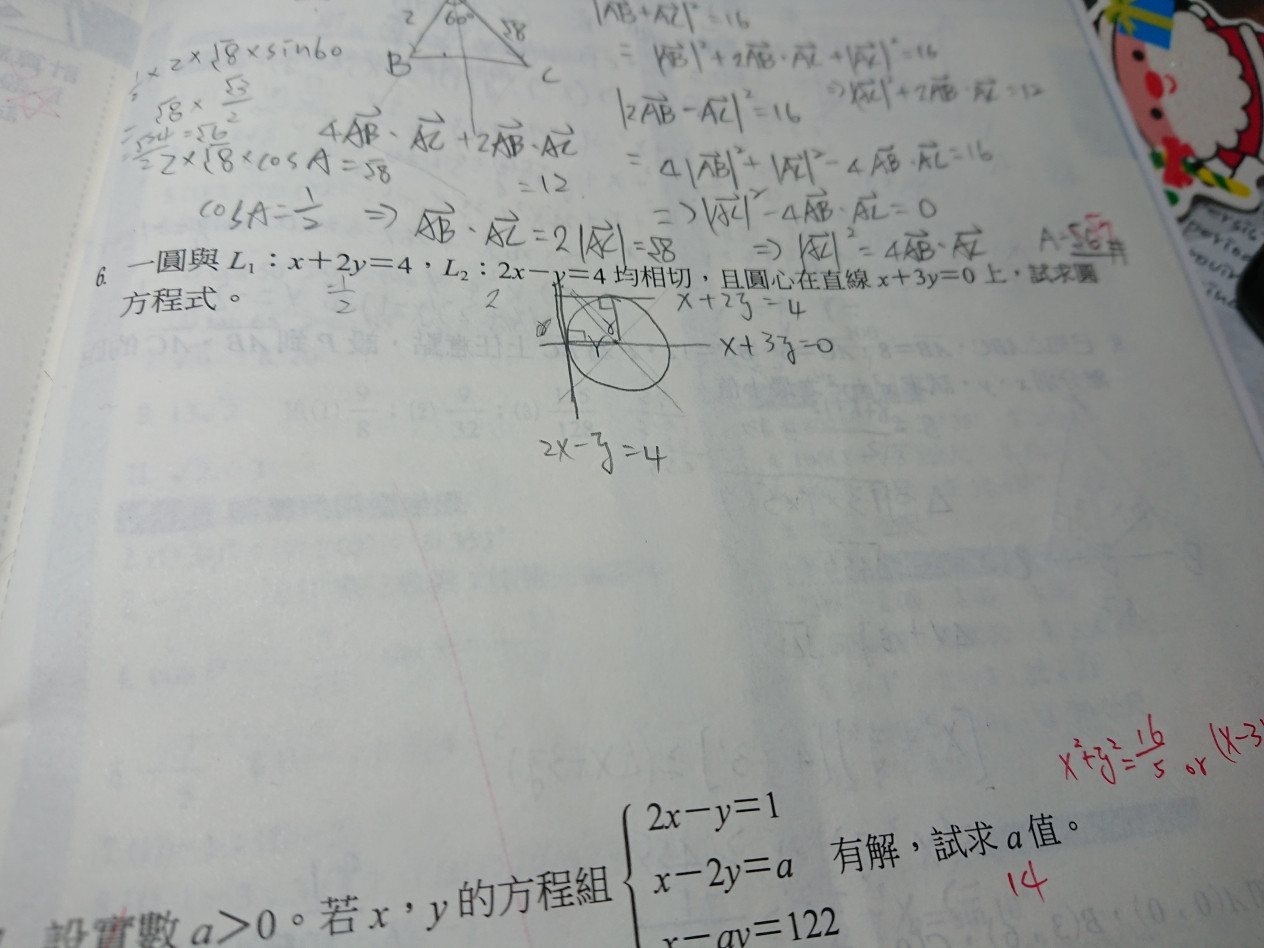 2 60° √8
B C
½ × 2 × √8 × sin60
√8 × √3/2
= √24/2 = √6
2 × √8 × cos A = √8
cosA = 1/2 ⇒ AB · AC = 2|AC| = √8
4AB · AC + 2AB · AC
= 12
|AB + AC|² = 16
= |AB|² + 2AB · AC + |AC|² = 16
⇒ |AC|² + 2AB · AC = 12
|2AB − AC|² = 16
= 4|AB|² + |AC|² − 4AB · AC = 16
⇒ |AC|² − 4AB · AC = 0
⇒ |AC|² = 4AB · AC
6. 一圓與 L₁：x＋2y＝4，L₂：2x－y＝4 均相切，且圓心在直線 x＋3y＝0 上，試求圓
方程式。
-1/2 2
x + 2y = 4
r
x + 3y = 0
2x − y = 4
x² + y² = 16/5 or (x−3
設實數 a＞0。若 x，y 的方程組 2x－y＝1
x－2y＝a 有解，試求 a 值。
x－ay＝122
14